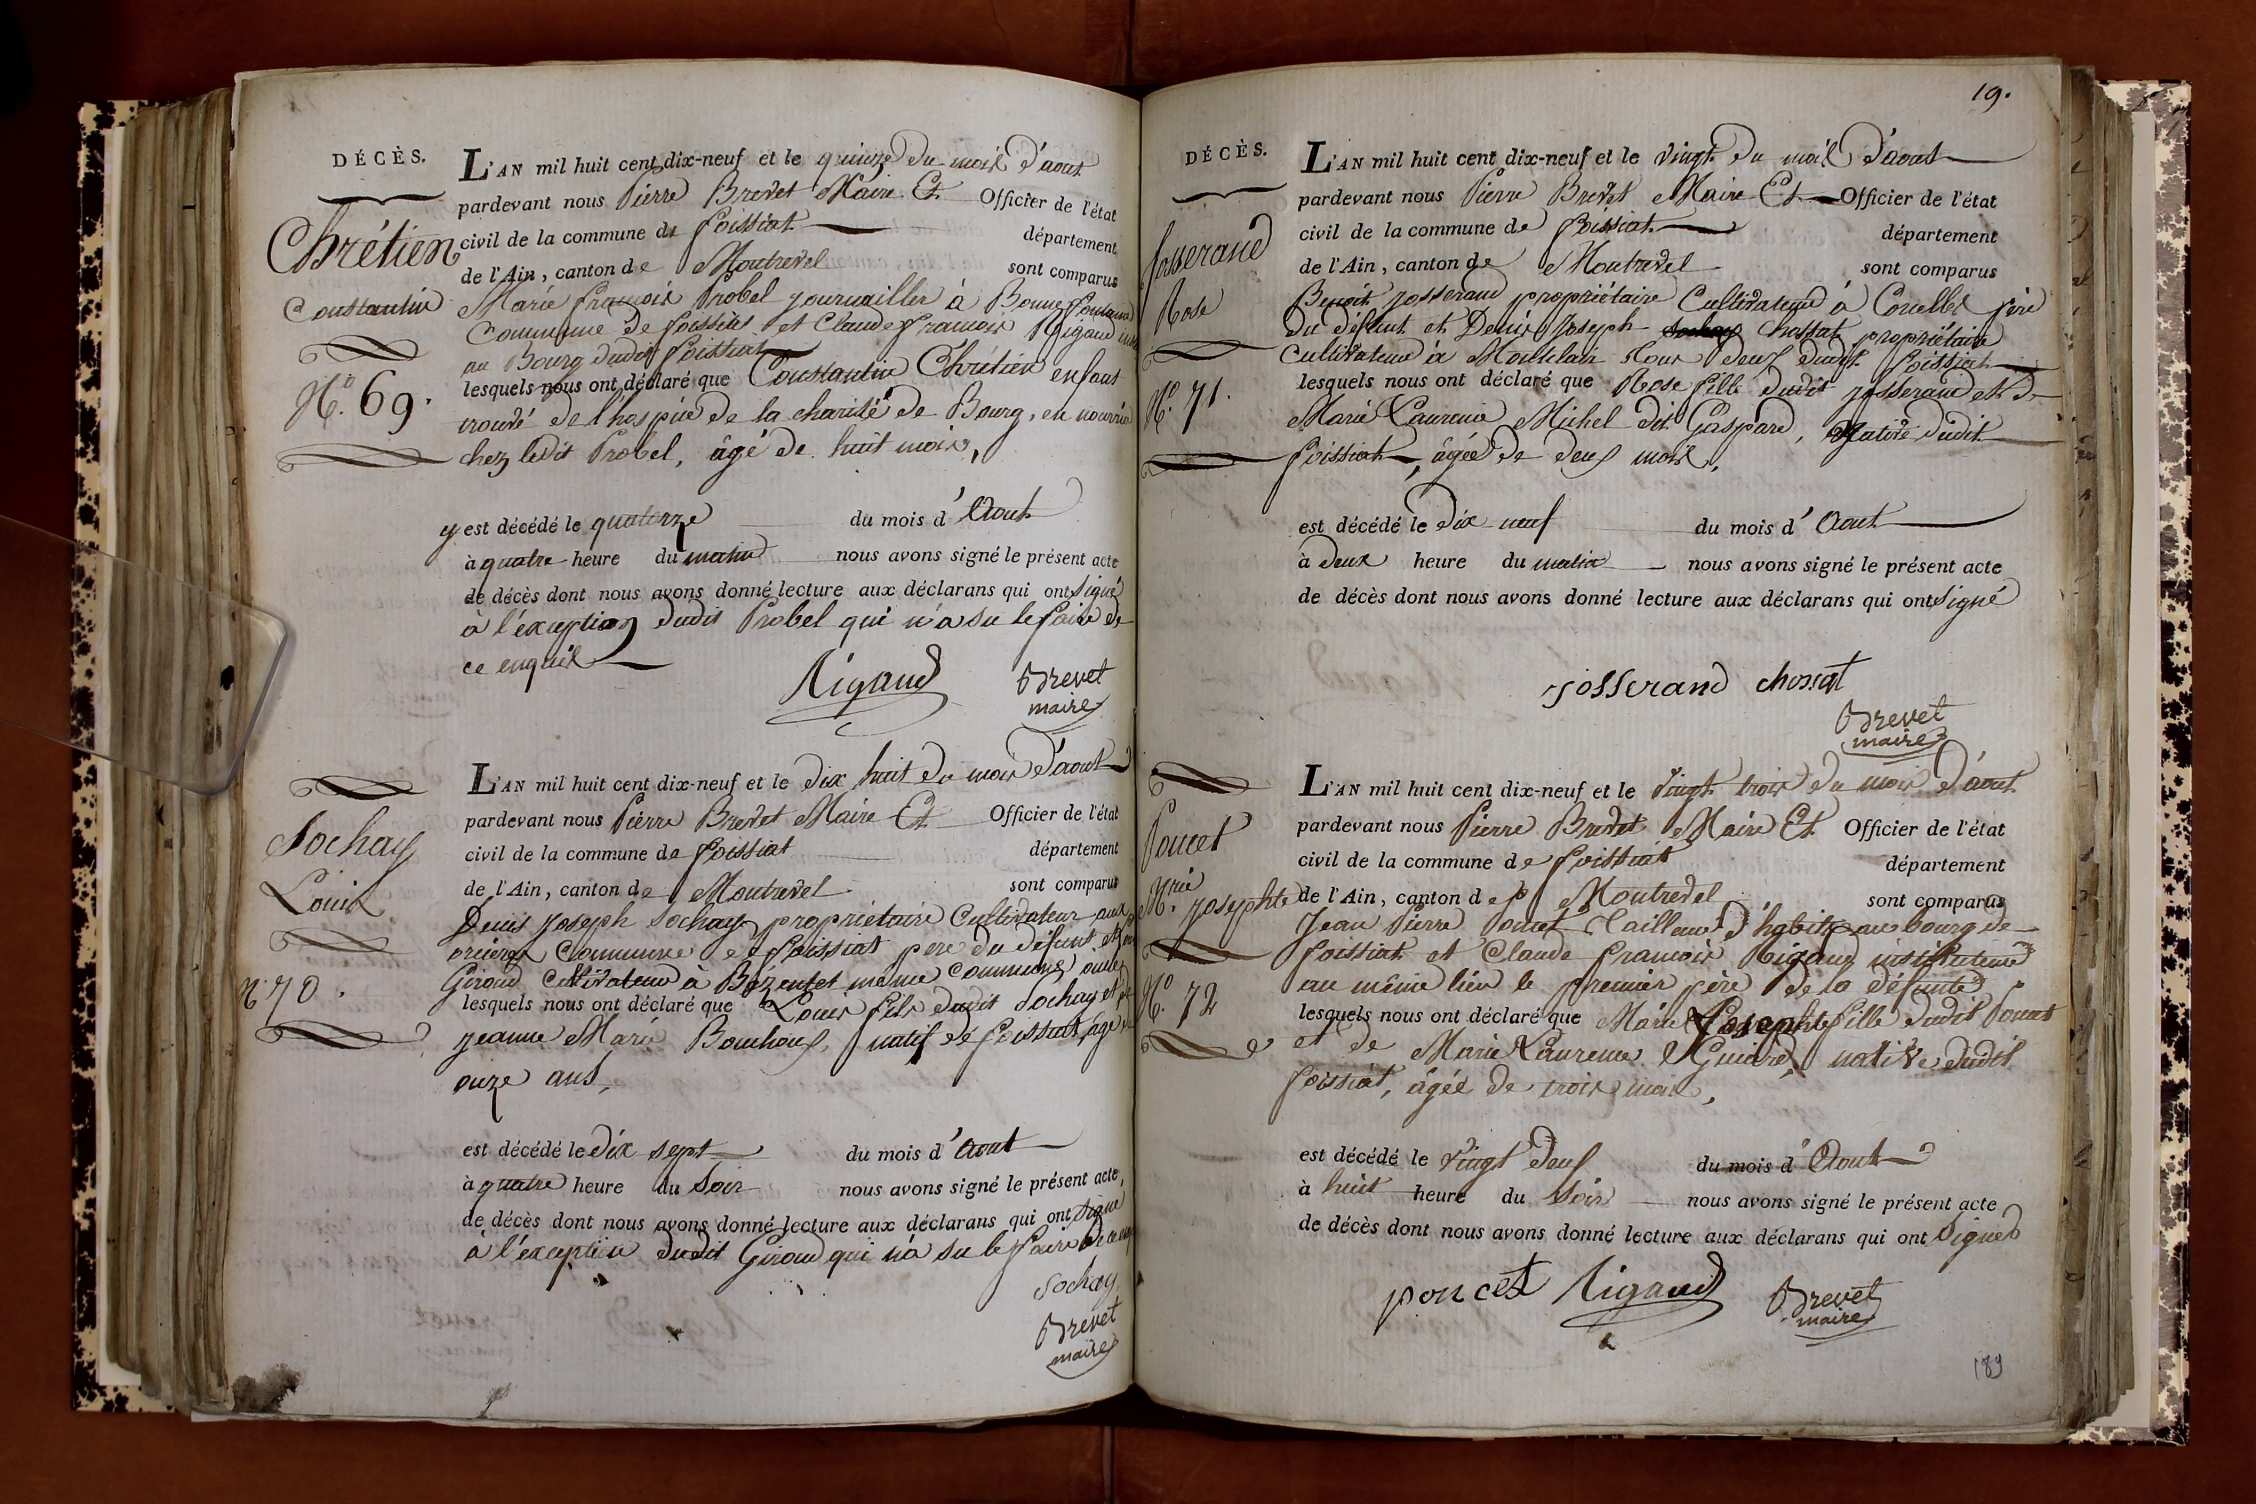 DÉCÈS.
L'AN mil huit cent dix-neuf et le quinze du mois d'aout
pardevant nous Pierre Brevet Maire Et Officier de l'état
civil de la commune de foissiat département
de l'Ain, canton de Montrevel sont comparus
Chrétien
Constantin
N.º 69.
Marie françois Probel journaillier à Bonne fontaine
Commune de foissiat et Claude françois Rigaud
au Bourg dudit foissiat
lesquels nous ont déclaré que Constantin Chrétien enfant
trouvé de l'hospice de la charité de Bourg, en nourrice
chez ledit Probel, âgé de huit mois,
y est décédé le quatorze du mois d'Aout
à quatre heure du matin nous avons signé le présent acte
de décès dont nous avons donné lecture aux déclarans qui ont signé
à l'exception dudit Probel qui n'a su le faire de
ce enquis
Rigaud Brevet
maire
L'AN mil huit cent dix-neuf et le dix huit du mois d'aout
pardevant nous Pierre Brevet Maire Et Officier de l'état
civil de la commune de foissiat département
de l'Ain, canton de Montrevel sont comparus
Sochay
Louis
N.º 70.
Denis joseph Sochay propriétaire Cultivateur aux
Commune de foissiat père du défunt et
Giroud Cultivateur à Bézentet même commune
lesquels nous ont déclaré que Louis fils dudit Sochay et de
jeanne Marie Bouchoux, natif de foissiat, âgé
onze ans,
est décédé le dix sept du mois d'Aout
à quatre heure du Soir nous avons signé le présent acte,
de décès dont nous avons donné lecture aux déclarans qui ont signé
à l'exception dudit Giroud qui n'a su le faire de ce
Sochay
Brevet
maire
19.
DÉCÈS.
L'AN mil huit cent dix-neuf et le vingt du mois d'aout
pardevant nous Pierre Brevet Maire Et Officier de l'état
civil de la commune de foissiat département
de l'Ain, canton de Montrevel sont comparus
josserand
Rose
N.º 71.
Benoit josserand propriétaire Cultivateur à Corcelles père
du défunt et Denis Joseph Chossat propriétaire
Cultivateur à tous deux dudit foissiat
lesquels nous ont déclaré que Rose fille dudit josserand et de
Marie Laurence Michel dit Gaspard, Native dudit
foissiat, âgée de deux mois,
est décédé le dix neuf du mois d'Aout
à deux heure du matin nous avons signé le présent acte
de décès dont nous avons donné lecture aux déclarans qui ont signé
josserand chossat
Brevet
maire
L'AN mil huit cent dix-neuf et le vingt trois du mois d'aout
pardevant nous Pierre Brevet Maire Et Officier de l'état
civil de la commune de foissiat département
de l'Ain, canton de Montrevel sont comparus
Poncet
M.rie josephte
N.º 72
Jean Pierre Poncet Tailleur d'habits au bourg de
foissiat et Claude francois Rigaud instituteur
au même lieu le premier père de la défunte
lesquels nous ont déclaré que Marie Josephte fille dudit Poncet
et de Marie Laurence Guiard, native dudit
foissiat, âgée de trois mois,
est décédé le vingt deux du mois d'Aout
à huit heure du Soir nous avons signé le présent acte
de décès dont nous avons donné lecture aux déclarans qui ont Signé
poncet Rigaud Brevet
maire
189